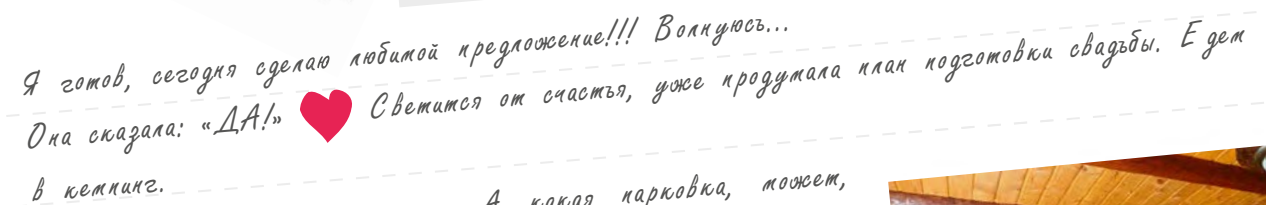 Я готов, сегодня сделаю любимой предложение!!! Волнуюсь...
Она сказала: «ДА!» Светится от счастья, уже продумала план подготовки свадьбы. Едем
в кемпинг.
А какая парковка, может,